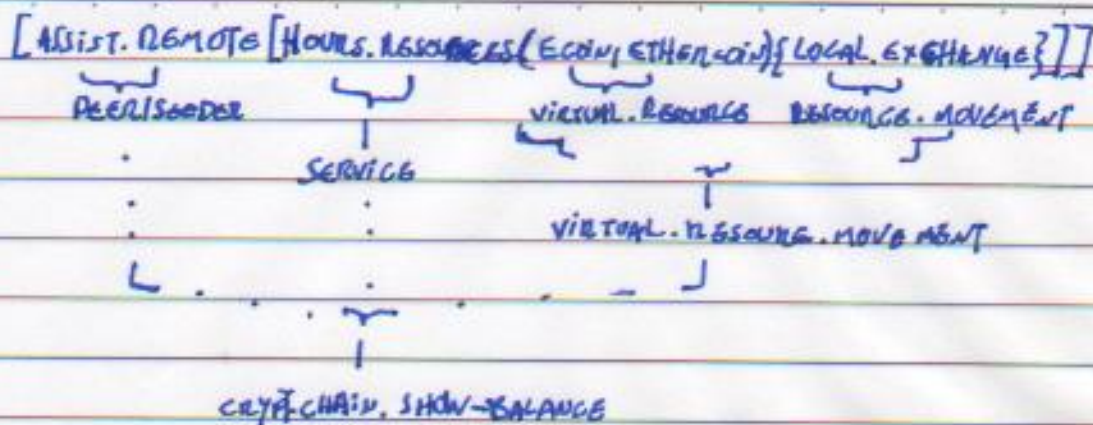 [ASSIST.REMOTE[HOURS.RESOURCES(ECOIN,ETHERCOIN){LOCAL.EXCHANGE}]]
PEER/SEEDER VIRTUAL.RESOURCE RESOURCE.MOVEMENT
SERVICE
VIRTUAL.RESSOURE.MOVEMENT
CRYPTCHAIN.SHOW-BALANCE